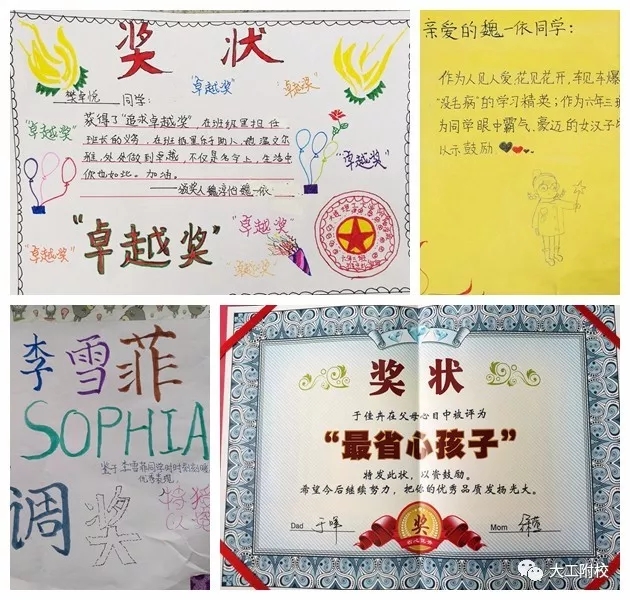 奖状
"卓越奖"
"卓越奖"
樊卓悦 同学：
获得了"追求卓越奖"，在班级里担任
班长的义务，在班级里乐于助人，
雅，处处做到卓越，不仅是名字上，生活中
你也如此。加油。
"卓越奖"
"卓越奖"
"卓越奖"
"卓越奖"
"卓越奖"
"卓越奖"
亲爱的魏一依同学：
作为人见人爱，花见花开，车见车爆
"没毛病"的学习精英；作为六年三班
为同学眼中霸气、豪迈的女汉子
以示鼓励
李雪菲
SOPHIA
鉴于李雪菲同学时时刻刻
优秀表现，
特
调奖
奖状
于佳卉在父母心目中被评为
"最省心孩子"
特发此状，以资鼓励。
希望今后继续努力，把你的优秀品质发扬光大。
Dad 于晖 Mom
奖
大工附校